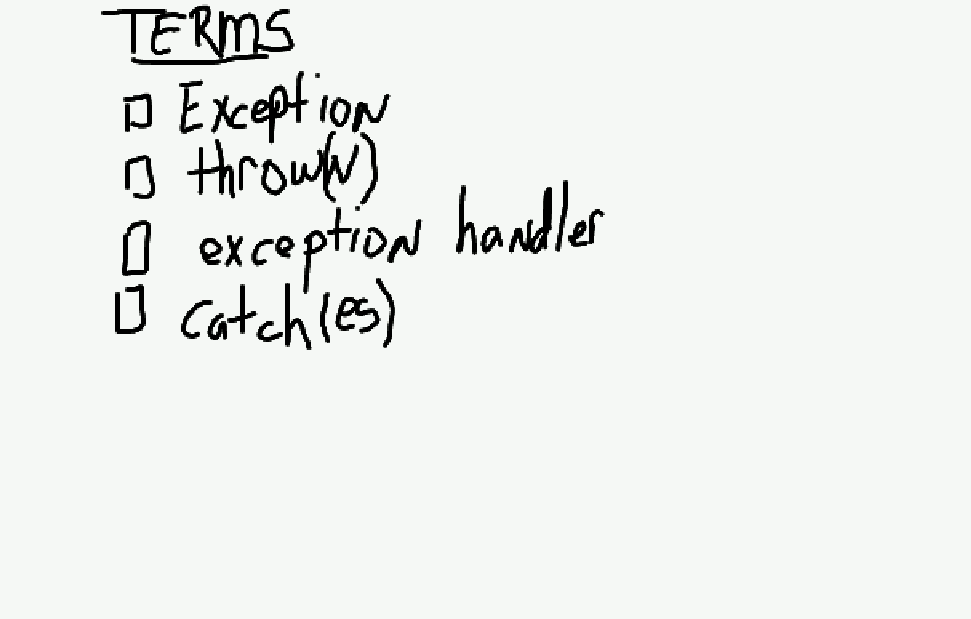 TERMS
Exception
throw(N)
exception handler
catch(es)